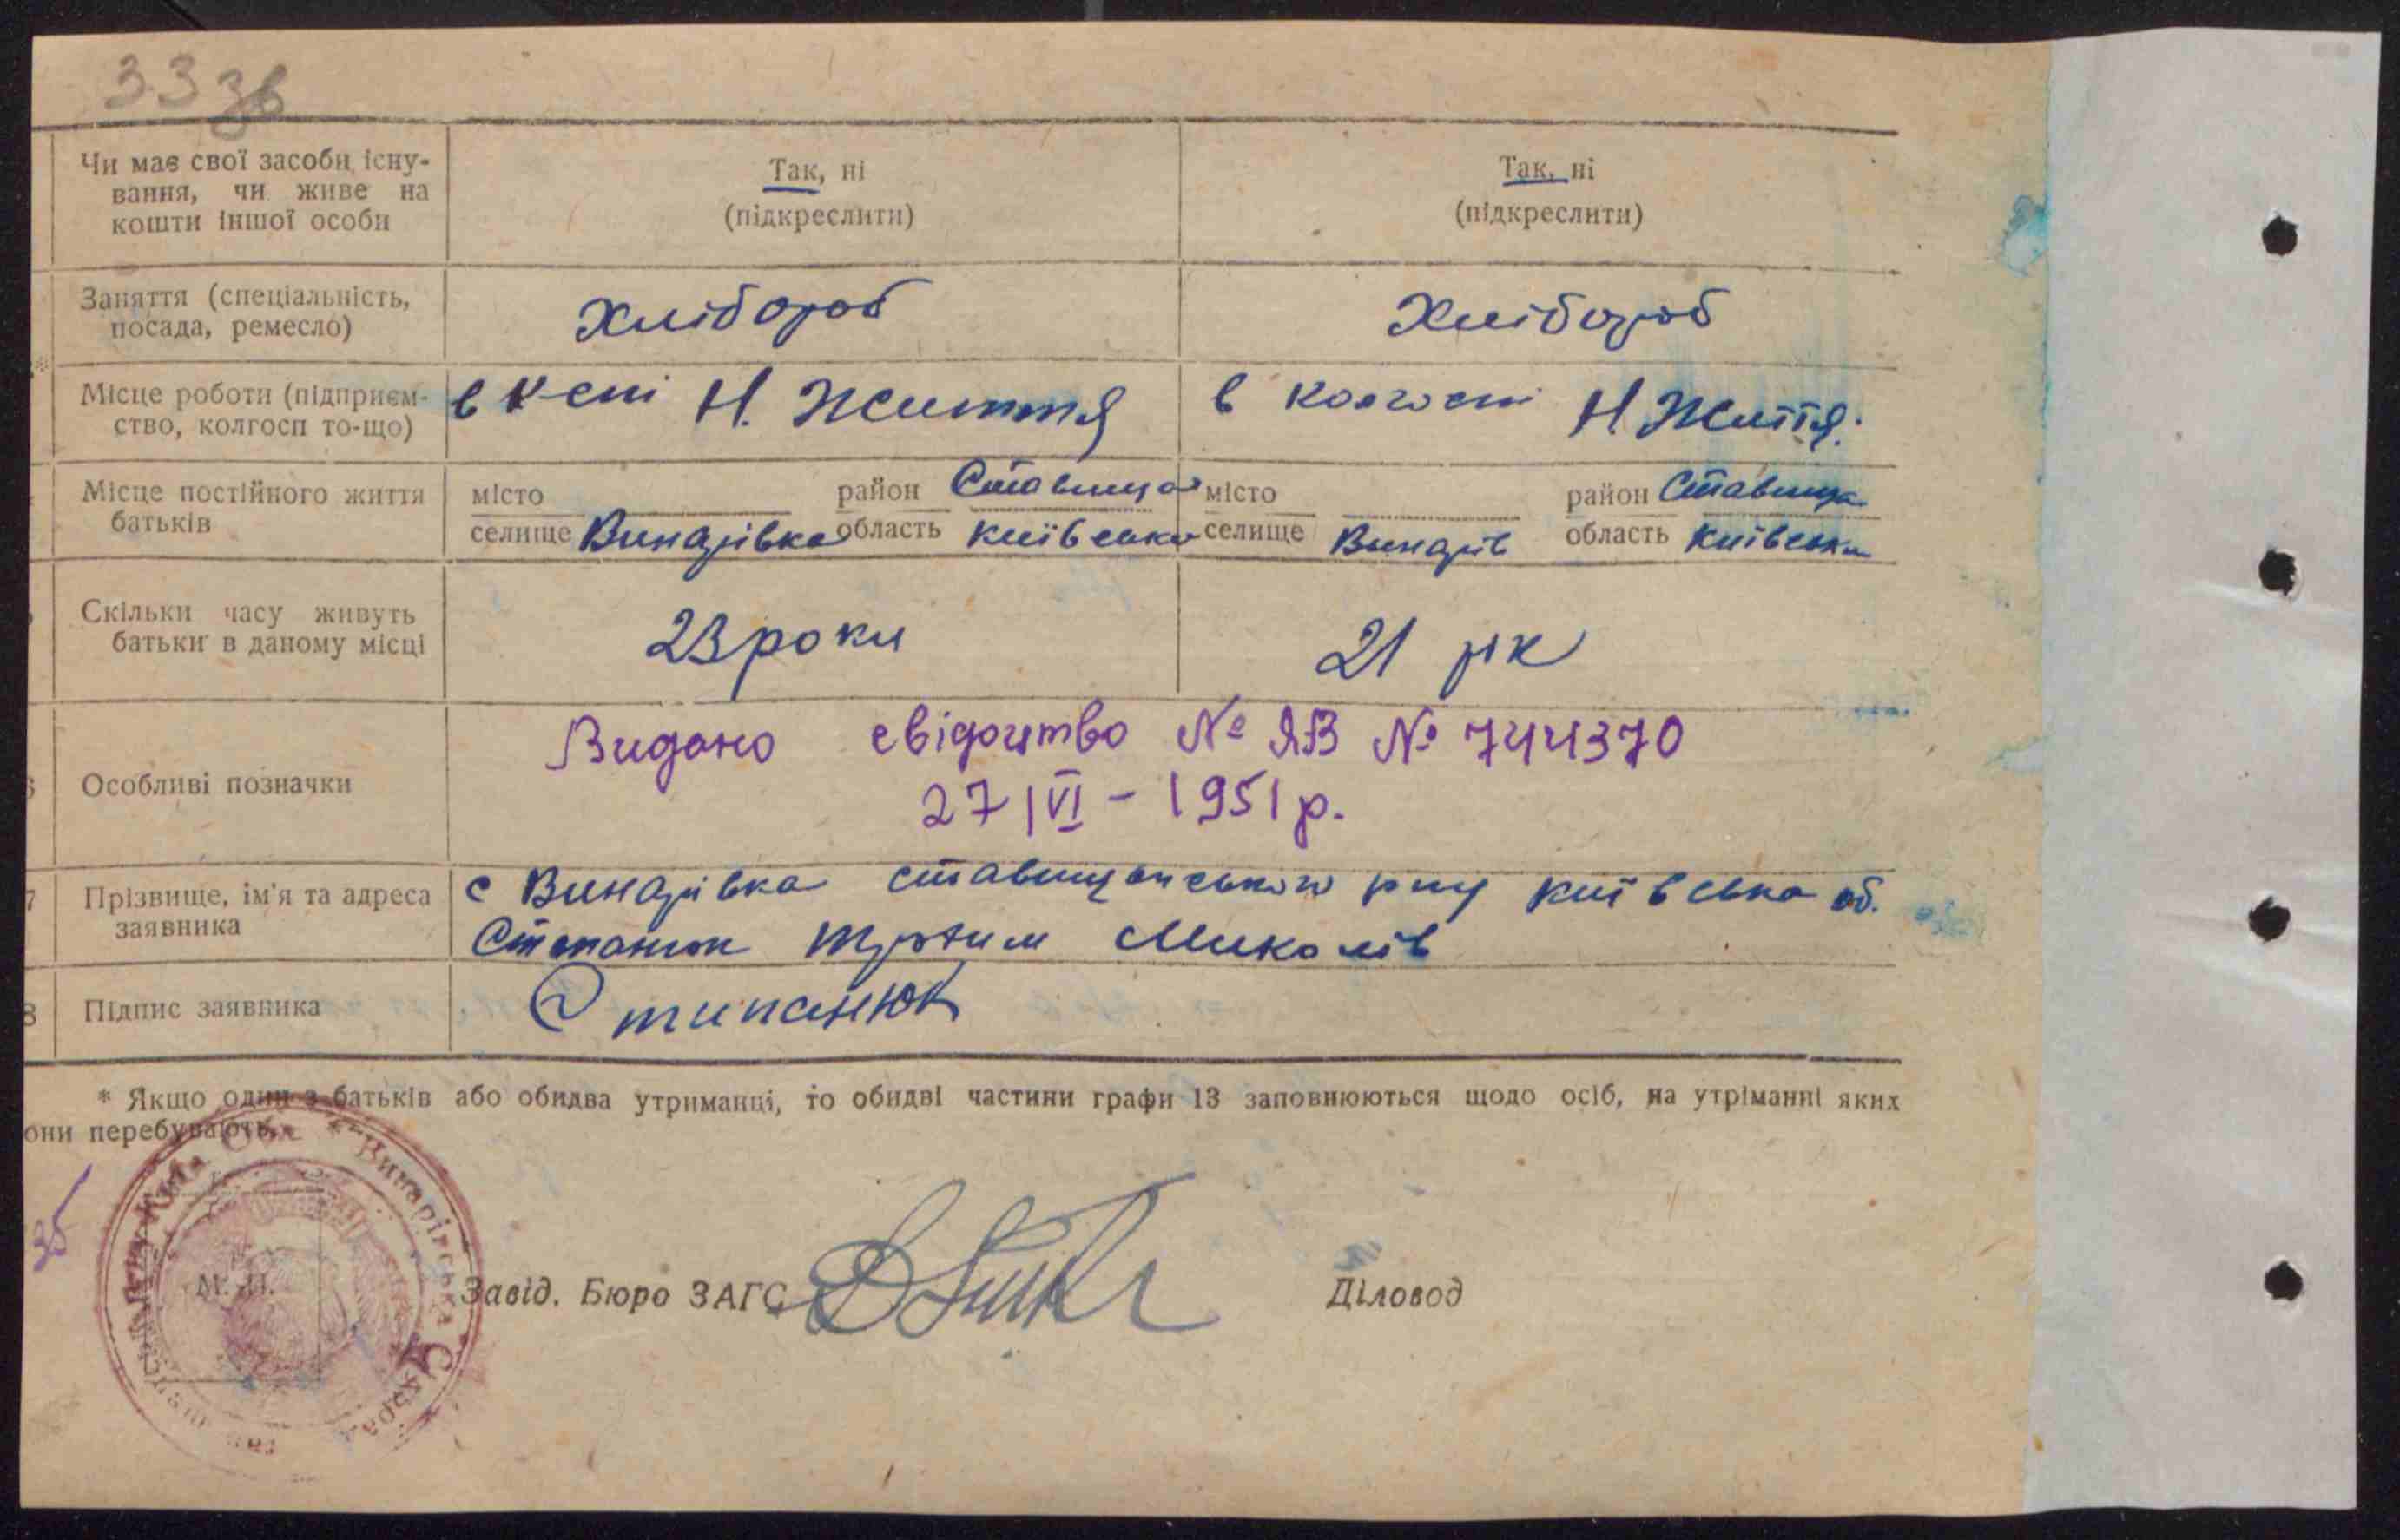 33 зв
Чи має свої засоби існу-
вання, чи живе на
кошти іншої особи
Так, ні
(підкреслити)
Так, ні
(підкреслити)
Заняття (спеціальність,
посада, ремесло)
Хлібороб
Хлібороб
Місце роботи (підприєм-
ство, колгосп то-що)
в к-спі Н. Життя
в колгоспі Н. Життя.
Місце постійного життя
батьків
місто район Ставища
селище Винарівка область Київська
місто район Ставища
селище Винарів область Київська
Скільки часу живуть
батьки в даному місці
23 роки
21 рік
6 Особливі позначки
Видано свідоцтво № ЯВ № 744370
27/VI - 1951 р.
7 Прізвище, ім'я та адреса
заявника
с Винарівка ставищанського р-ну Київська об.
Степанюк Миколів
8 Підпис заявника
Стипанюк
* Якщо один з батьків або обидва утриманці, то обидві частини графи 13 заповнюються щодо осіб, на утріманні яких
они перебувають.
Винарівська Сільрада
М. П.
Завід. Бюро ЗАГС
Діловод